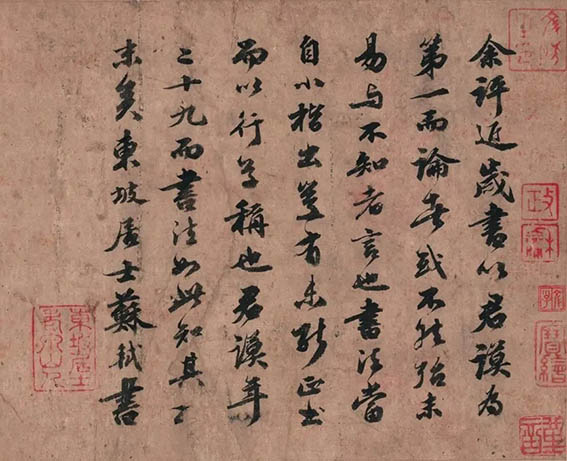 余評近歲書以君謨為
第一而論者或不然殆未
易与不知者言也書法當
自小楷出豈有未能正書
而以行草稱也君謨年
二十九而書法如此知其
末矣東坡居士蘇軾書
政龢
寶繪
東坡居士